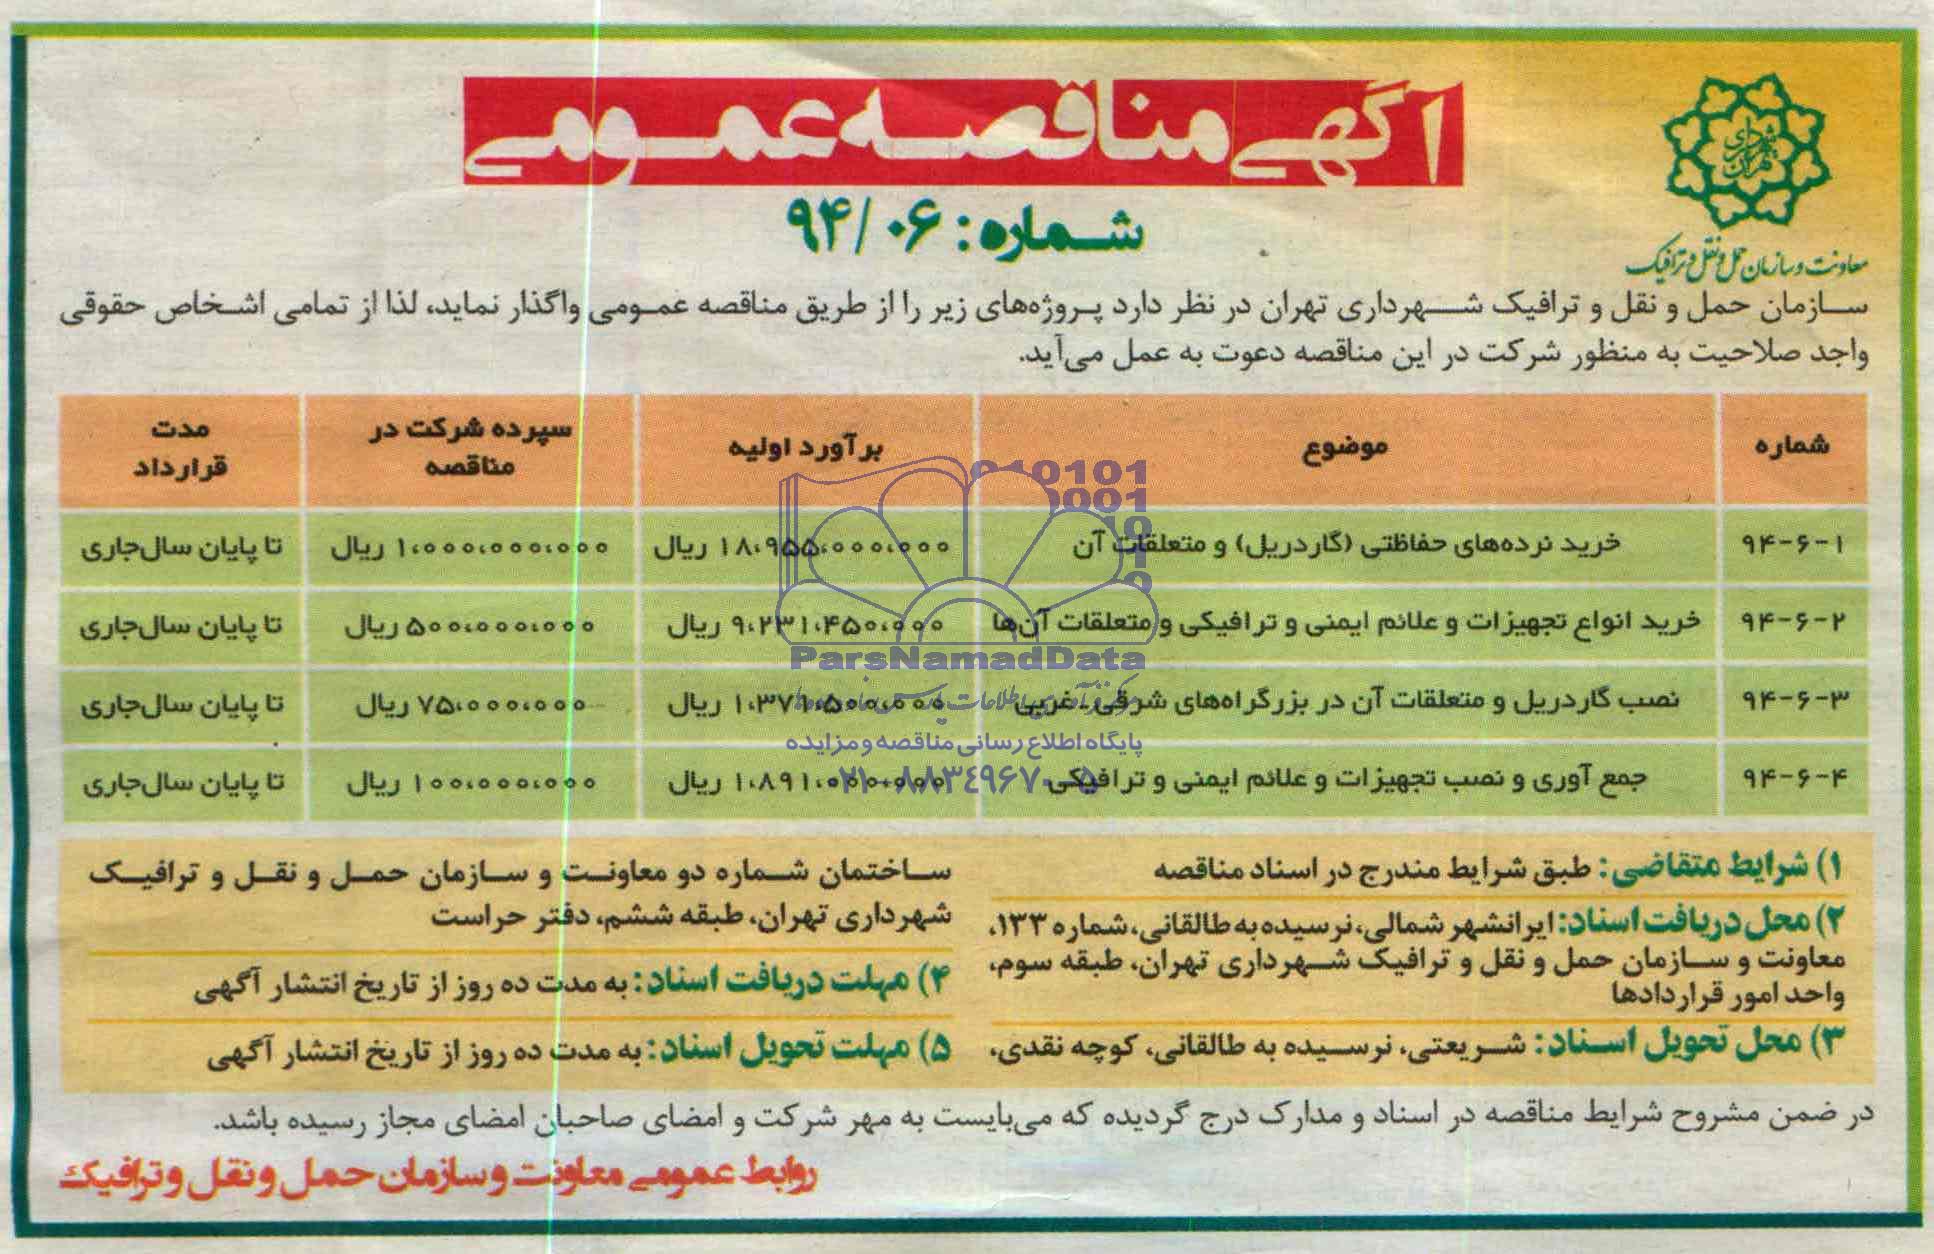 آگهی مناقصه عمومی
شماره: ۹۴/۰۶
معاونت و سازمان حمل و نقل و ترافیک
سازمان حمل و نقل و ترافیک شهرداری تهران در نظر دارد پروژه‌های زیر را از طریق مناقصه عمومی واگذار نماید، لذا از تمامی اشخاص حقوقی
واجد صلاحیت به منظور شرکت در این مناقصه دعوت به عمل می‌آید.
شماره موضوع برآورد اولیه سپرده شرکت در مناقصه مدت قرارداد
۹۴-۶-۱ خرید نرده‌های حفاظتی (گاردریل) و متعلقات آن ۱۸،۹۵۵،۰۰۰،۰۰۰ ریال ۱،۰۰۰،۰۰۰،۰۰۰ ریال تا پایان سال‌جاری
۹۴-۶-۲ خرید انواع تجهیزات و علائم ایمنی و ترافیکی و متعلقات آن‌ها ۹،۲۳۱،۴۵۰،۰۰۰ ریال ۵۰۰،۰۰۰،۰۰۰ ریال تا پایان سال‌جاری
۹۴-۶-۳ نصب گاردریل و متعلقات آن در بزرگراه‌های شرقی ـ غربی ۱،۳۷۱،۵۰۰،۰۰۰ ریال ۷۵،۰۰۰،۰۰۰ ریال تا پایان سال‌جاری
۹۴-۶-۴ جمع آوری و نصب تجهیزات و علائم ایمنی و ترافیکی ۱،۸۹۱،۰۰۰،۰۰۰ ریال ۱۰۰،۰۰۰،۰۰۰ ریال تا پایان سال‌جاری
ParsNamadData
پایگاه اطلاع رسانی مناقصه و مزایده
۰۲۱-۸۸۳۴۹۶۷۰-۵
۱) شرایط متقاضی: طبق شرایط مندرج در اسناد مناقصه
۲) محل دریافت اسناد: ایرانشهر شمالی، نرسیده به طالقانی، شماره ۱۳۳،
معاونت و سازمان حمل و نقل و ترافیک شهرداری تهران، طبقه سوم،
واحد امور قراردادها
۳) محل تحویل اسناد: شریعتی، نرسیده به طالقانی، کوچه نقدی،
ساختمان شماره دو معاونت و سازمان حمل و نقل و ترافیک
شهرداری تهران، طبقه ششم، دفتر حراست
۴) مهلت دریافت اسناد: به مدت ده روز از تاریخ انتشار آگهی
۵) مهلت تحویل اسناد: به مدت ده روز از تاریخ انتشار آگهی
در ضمن مشروح شرایط مناقصه در اسناد و مدارک درج گردیده که می‌بایست به مهر شرکت و امضای صاحبان امضای مجاز رسیده باشد.
روابط عمومی معاونت و سازمان حمل و نقل و ترافیک